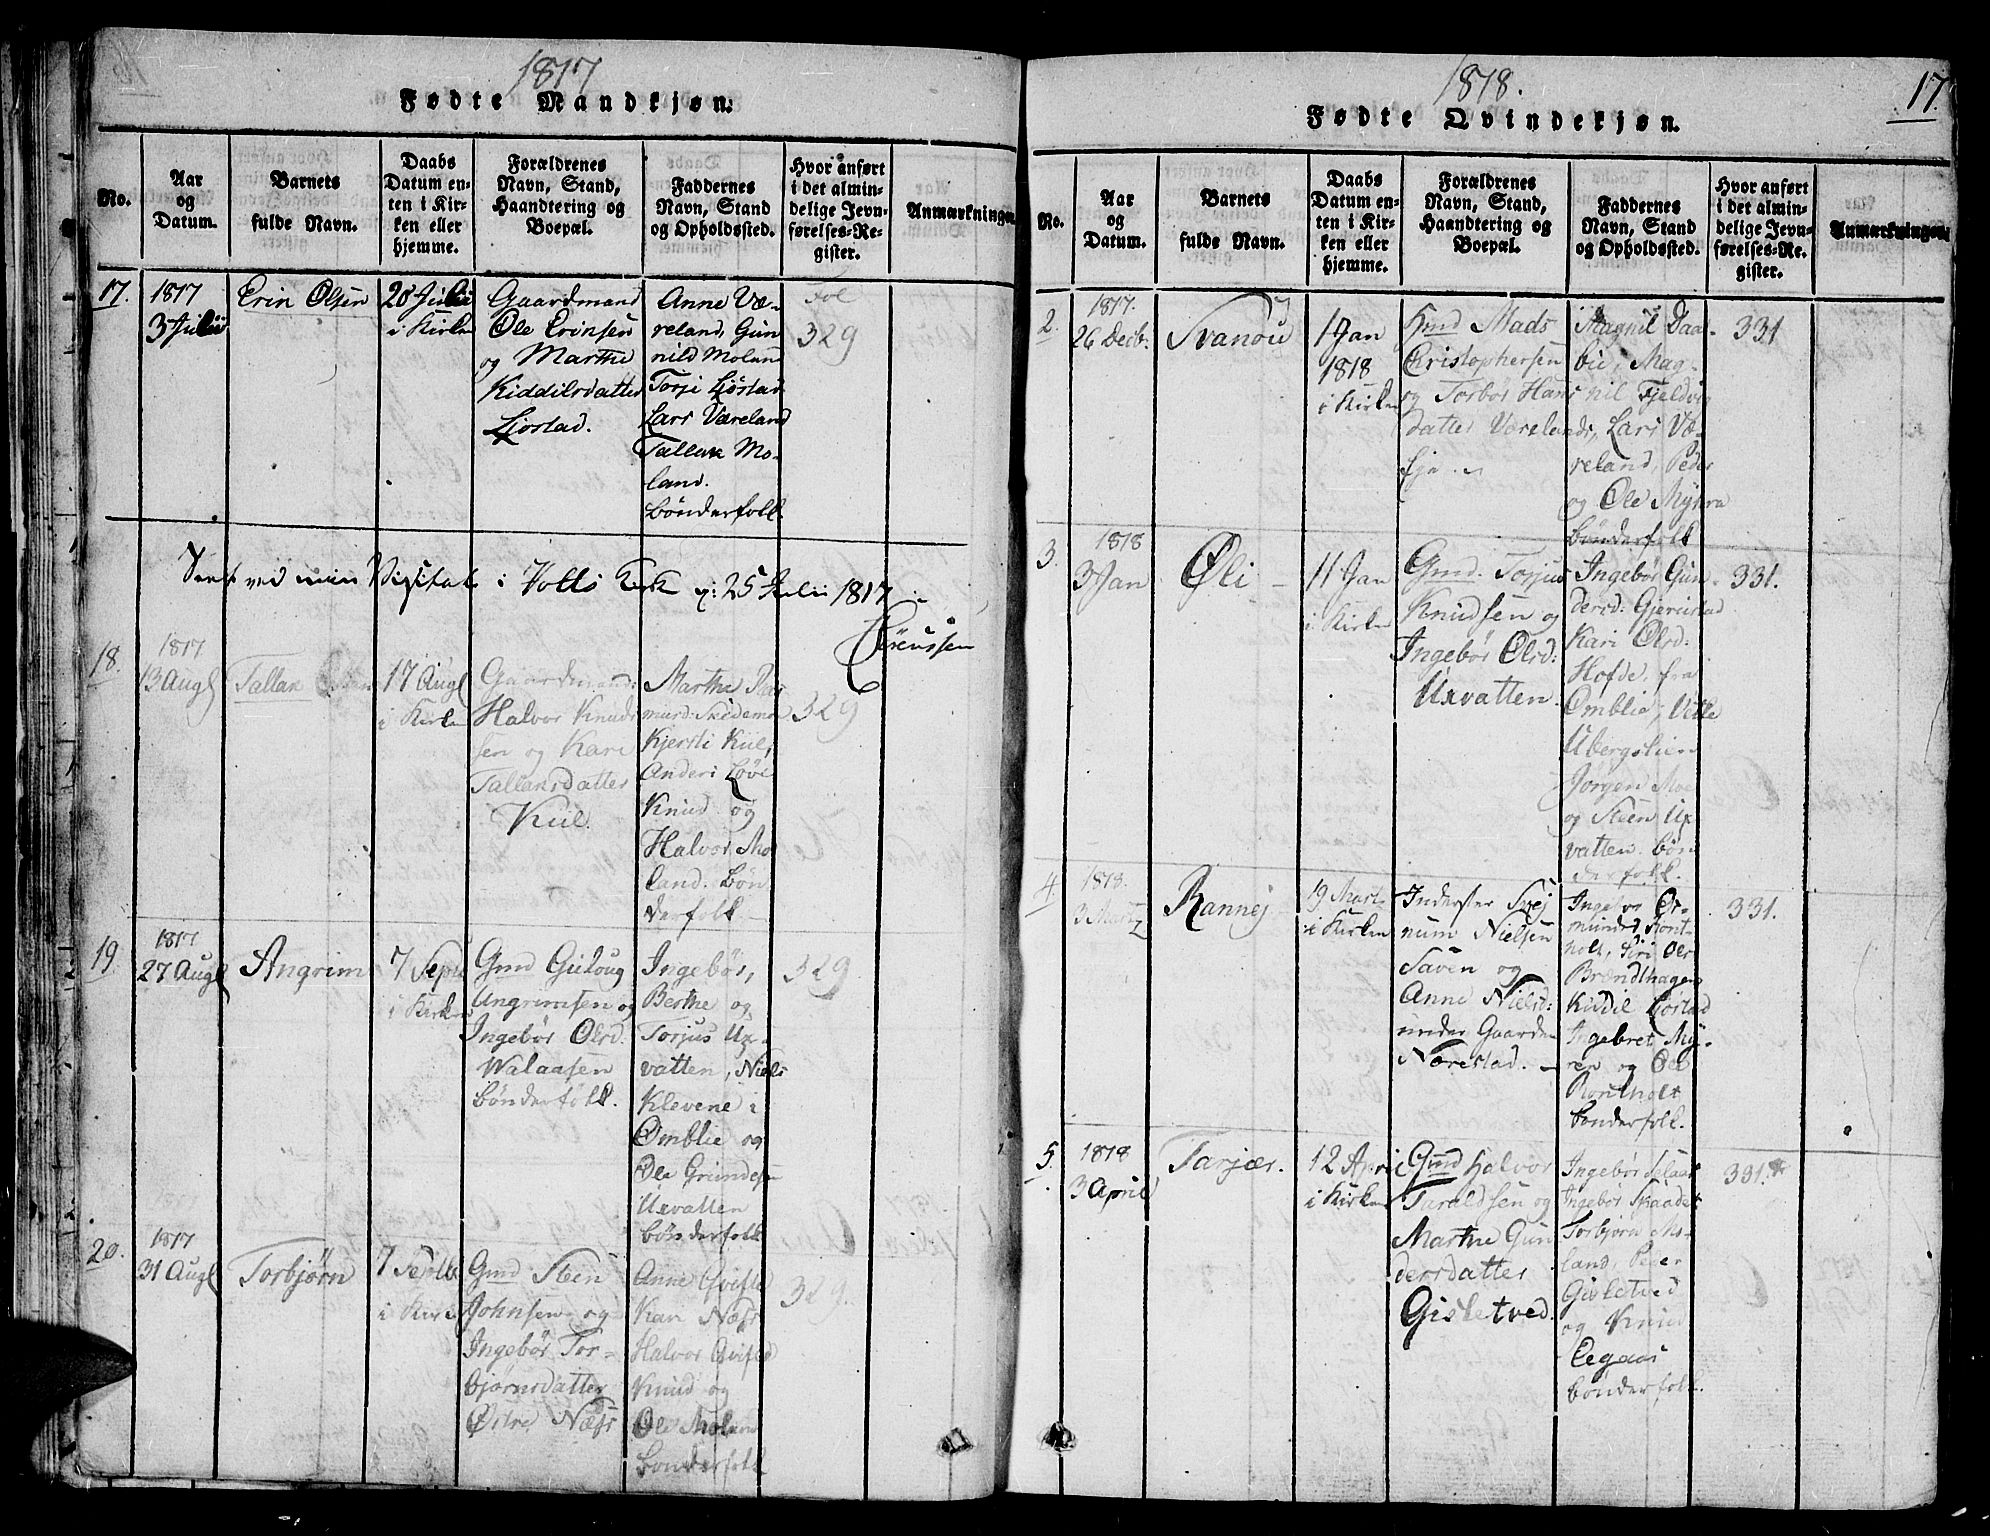 1817
Fødte Mandkjøn.
No.
Aar
og
Datum.
Barnets
fulde Navn.
Daabs
Datum en-
ten i Kir-
ken eller
hjemme.
Forældrenes
Navn, Stand,
Haandtering og
Boepæl.
Faddernes
Navn, Stand
og Opholdssted.
Hvor anført
i det almin-
delige Jevn-
førelses-Re-
gister.
Anmærkninger.
17.
1817
3 Julii
Erin Olsen
20 Julii
i Kirken
Gaardmand
Ole Erinsen
og Marthe
Kiddilsdatter
Ljøstad.
Anne Væ-
reland, Gun
nild Molan
Torje Ljøstad
Lars Væreland
Tallak Mo-
land.
bønderfolk.
Fol
329
Seet ved min Visitats i Kirk 25 Julii 1817
Sørenssen
18.
1817
13 Augl
Tallak
17 Augl
i Kirken
Gaardmand:
Halvor Knud
sen og Kari
Tallaksdatter
Kiil.
Marthe Ras
musd: Skidemon
Kjersti Kiil,
Anders Løve
Knud og
Halvor Mo
land. bøn
derfolk
329
19.
1817
27 Augl
Angrim
7 Septb
i Kirken
Gmd
Ungrimsen og
Ingebør Olsd.
Walaasen
bønderfolk.
Ingebør,
Berthe og
Torjus Ux-
vatten, Niels
Klevene i
Omblie og
Ole
Uxvatten
bønderfolk
329
20.
1817
31 Augl
Torbjørn
7 Septb
i Kirk
Gmd Steen
Johnsen og
Ingebør Tor-
bjørnsdatter
Øitre Næss
Anne Qvifted
Kari Næss
Halvor Qvifted
Knud og
Ole Moland
bønderfolk
329.
1818.
17.
Fødte Qvindekjøn.
No.
Aar
og
Datum.
Barnets
fulde Navn.
Daabs
Datum en-
ten i Kir-
ken eller
hjemme.
Forældrenes
Navn, Stand,
Haandtering og
Boepæl.
Faddernes
Navn, Stand
og Opholdssted.
Hvor anført
i det almin-
delige Jevn-
førelses-Re-
gister.
Anmærkninger.
2.
1817.
26 Decbr.
Svanou
1 Jan
1818
i Kirken
Gmd Mads
Christophersen
og Torbør Hans
datter Værelands
Eje
Magnil Daa-
blie, Mag-
nil Fjeldvig
Lars Væ-
reland, Peder
og Ole Myhra
bønderfolk
331
3.
1818
3 Jan
Øli
11 Jan
i Kirken
Gmd. Torjus
Knudsen og
Ingebør Olsd:
Uxvatten.
Ingebør Gun
dersd: Gjerustad
Kari Olsd:
Hofde, fra
Omblie, Vetle
Ubergslien
Jørgen Moe
og Steen Ux
vatten. bøn
derfolk.
331.
4.
1818.
3 Martz
Rannej
19 Martz
i Kirken
Inderster Svej
num Nielsen
Saven og
Anne Nielsd:
under Gaarden
Nærestad.
mundsd:
holt, Siri Ols
Brændhagen
Kiddil Ljøstad
Ingebret My-
ren og Ole
Rontholt
bønderfolk.
331.
5.
1818
3 April
Tarjær.
12 Apri
i Kirken
Gmd Halvor
Taraldsen og
Marthe Gun
dersdatter
Gisletved.
Ingebør Selaas
Ingebør
Torbjørn Mo-
land, Peder
Gisletved
og Knud
Eegaas
bønderfolk.
331.